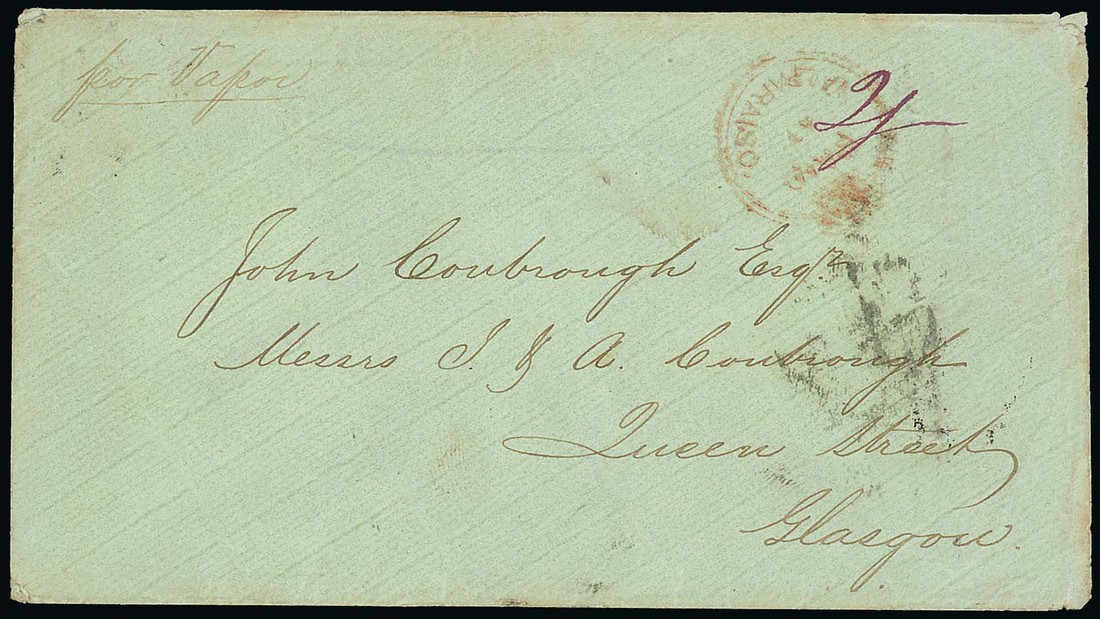 por Vapor
VALPARAISO
2/
John Coubrough Esqr
Messrs J. & A. Coubrough
Queen Street
Glasgow.